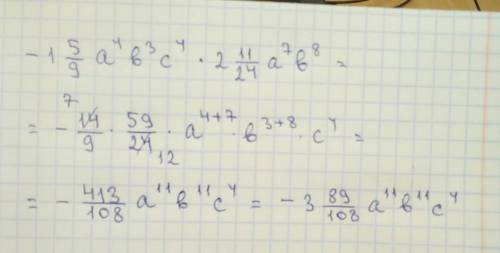 - 1 5/9 a⁴ b³ c⁴ · 2 11/24 a⁷ b⁸ =
= - 14/9 · 59/24 · a⁴⁺⁷ · b³⁺⁸ · c⁴ =
7 12
= - 413/108 a¹¹ b¹¹ c⁴ = - 3 89/108 a¹¹ b¹¹ c⁴